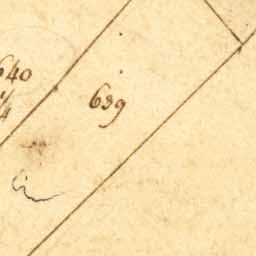 640
1/4
639